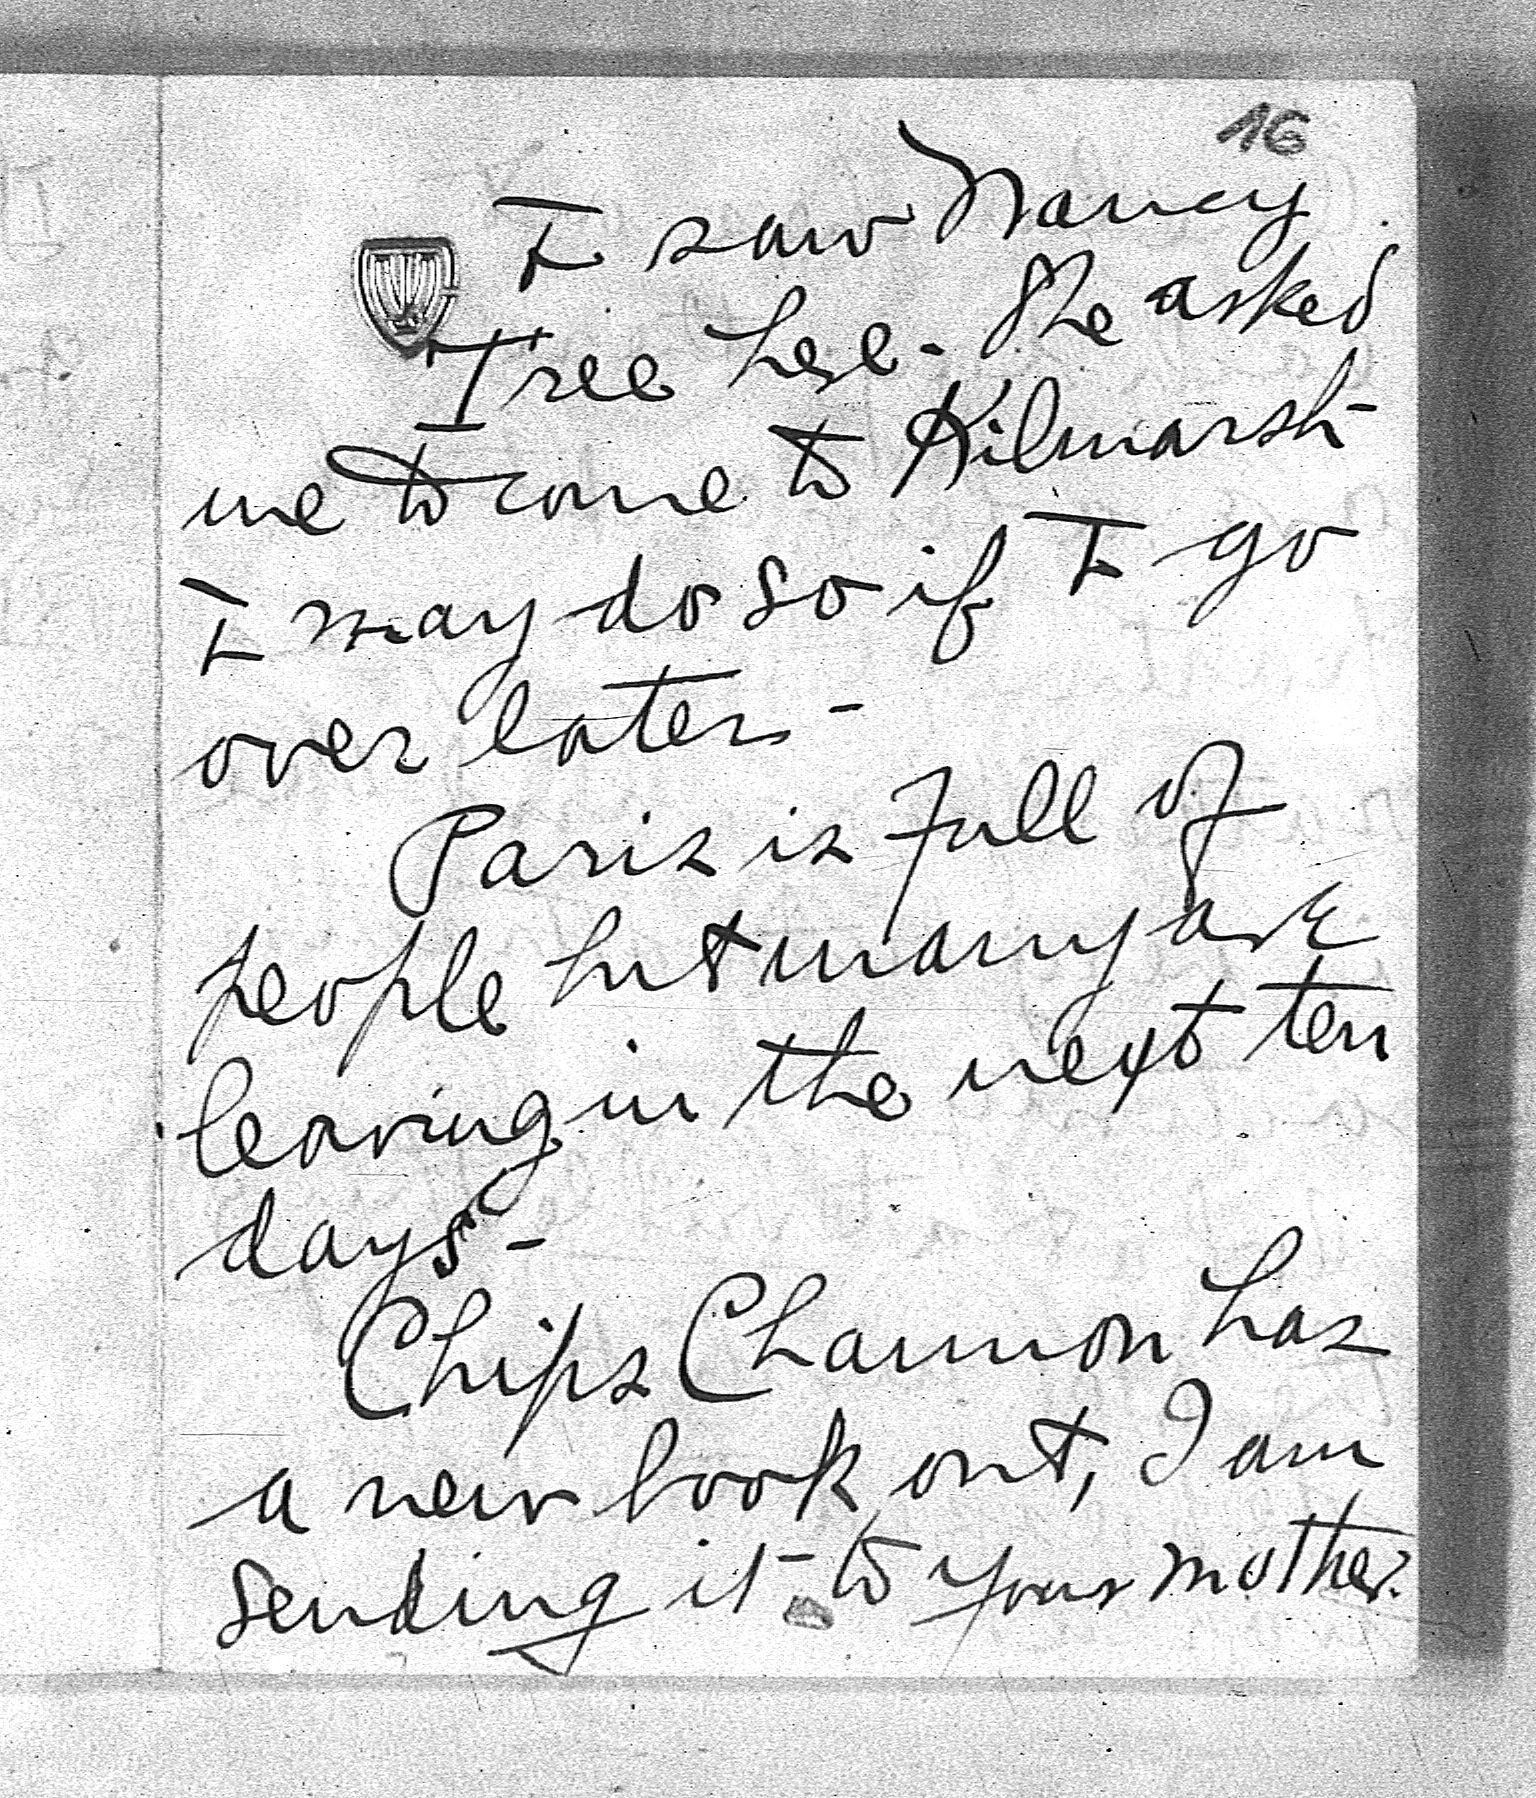 16
I saw Nancy
Tree here. She asked
me to come to Kilmarsh -
I may do so if I go
over later -
Paris is full of
people but many are
leaving in the next ten
days -
Chips Channon has
a new book out, I am
sending it to your mother.